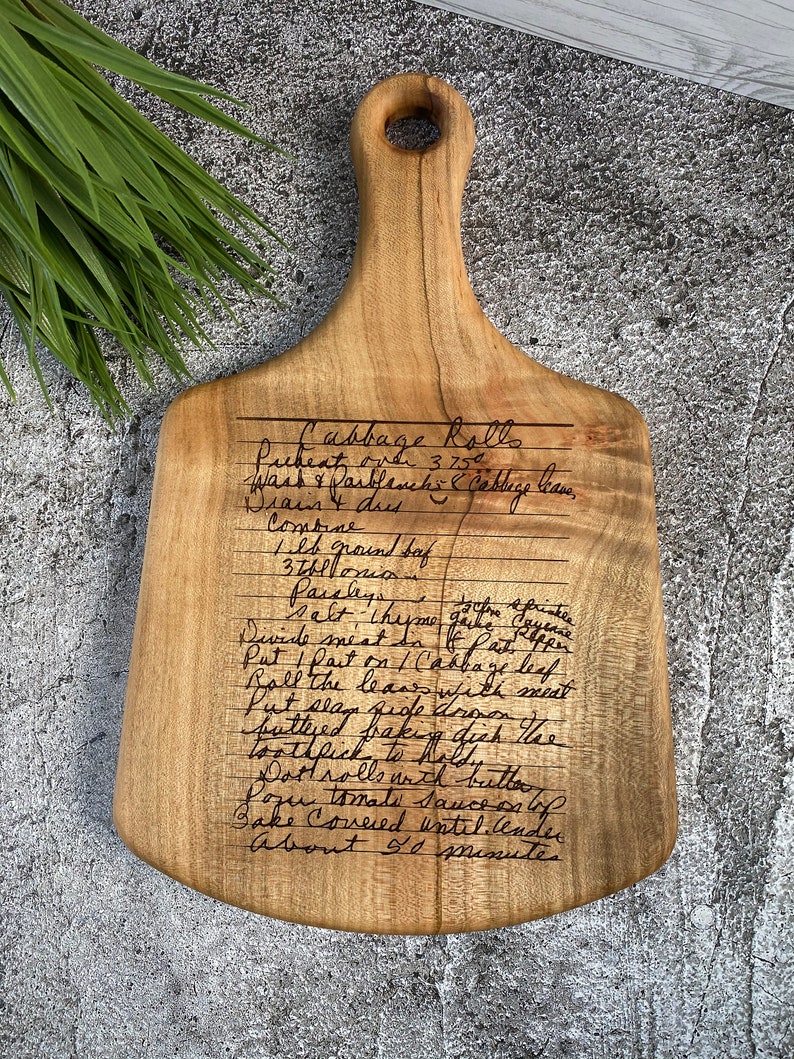 Cabbage Rolls
Preheat oven 375°
Wash & Parblanch - 8 Cabbage leaves
Drain & dry
Combine
1 lb ground beef
3 tbl onion
Parsley
Salt, Thyme, ½ clove garlic sprinkle Cayenne Pepper
Divide meat in 8 Parts
Put 1 Part on 1 Cabbage leaf
Roll the leaves with meat
Put seam side down in
buttered baking dish Use
toothpicks to hold,
Dot rolls with butter,
Pour tomato sauce on top
Bake Covered until tender
About 50 minutes